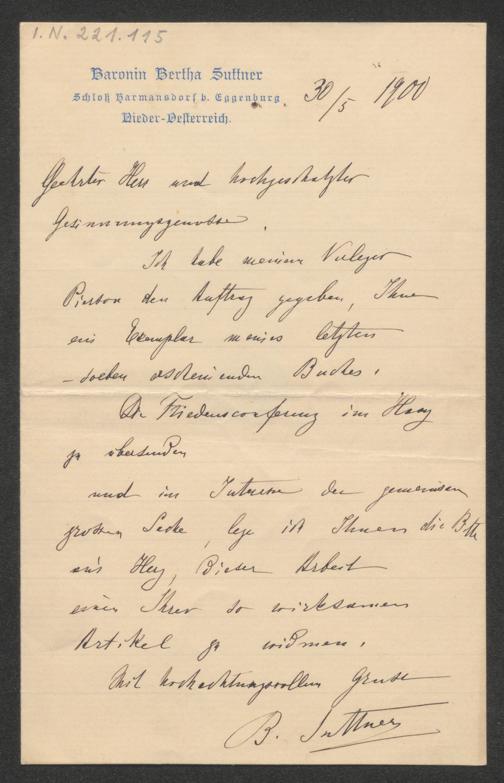 I. N. 221.115
Baronin Bertha Suttner
Schloß Harmansdorf b. Eggenburg
Nieder-Oesterreich.
30/5 1900
Geehrter Herr und hochgeschätzter
Gesinnungsgenosse.
Ich habe meinem Verleger
Pierson den Auftrag gegeben, Ihnen
ein Exemplar meines letzten
– soeben erscheinenden Buches,
Die Friedensconferenz im Haag
zu übersenden
und im Interesse der gemeinsamen
grossen Sache, lege ich Ihnen die Bitte
an's Herz, dieser Arbeit
einen Ihrer so wirksamen
Artikel zu widmen.
Mit hochachtungsvollem Gruss
B. Suttner